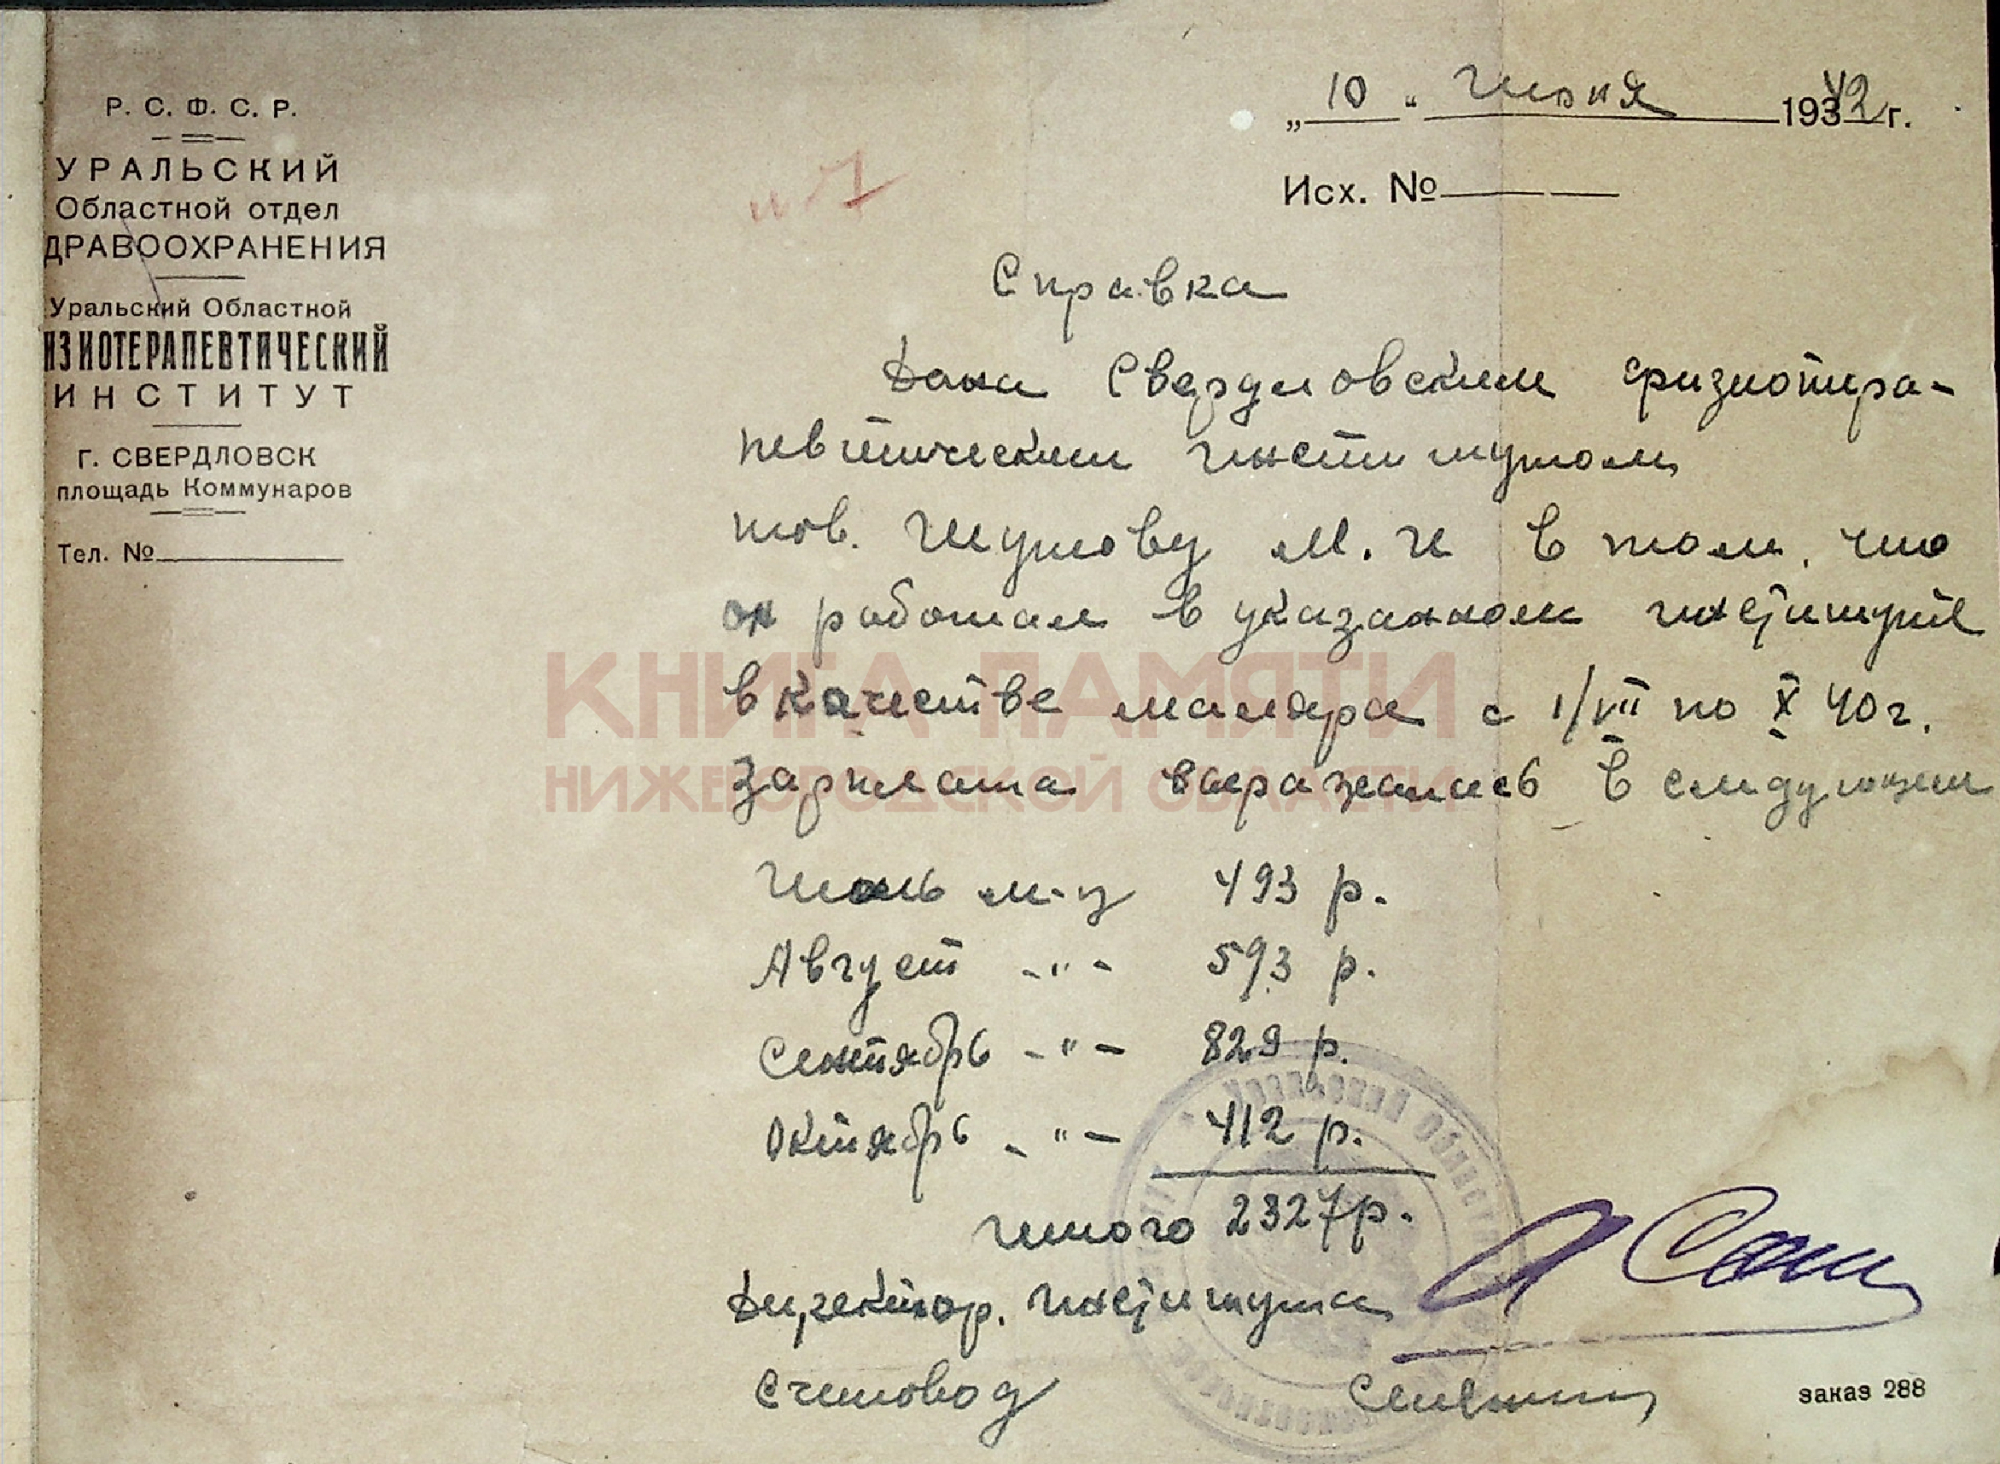 Р. С. Ф. С. Р.
УРАЛЬСКИЙ
Областной отдел
ДРАВООХРАНЕНИЯ
Уральский Областной
ИЗИОТЕРАПЕВТИЧЕСКИЙ
ИНСТИТУТ
Г. СВЕРДЛОВСК
площадь Коммунаров
Тел. №
„10" Июня 1942 г.
Исх. №
№7
Справка
Дана Свердловским физиотера-
певтическим институтом
тов. Шутову М. И в том, что
он работал в указанном институте
в качестве маляра с 1/VII по X 40 г.
Зарплата выражалась в следующем
Июль м-ц 493 р.
Август -"- 593 р.
Сентябрь -"- 829 р.
Октябрь -"- 412 р.
Итого 2327 р.
Директор. института
Счетовод
заказ 288
КНИГА ПАМЯТИ
НИЖЕГОРОДСКОЙ ОБЛАСТИ